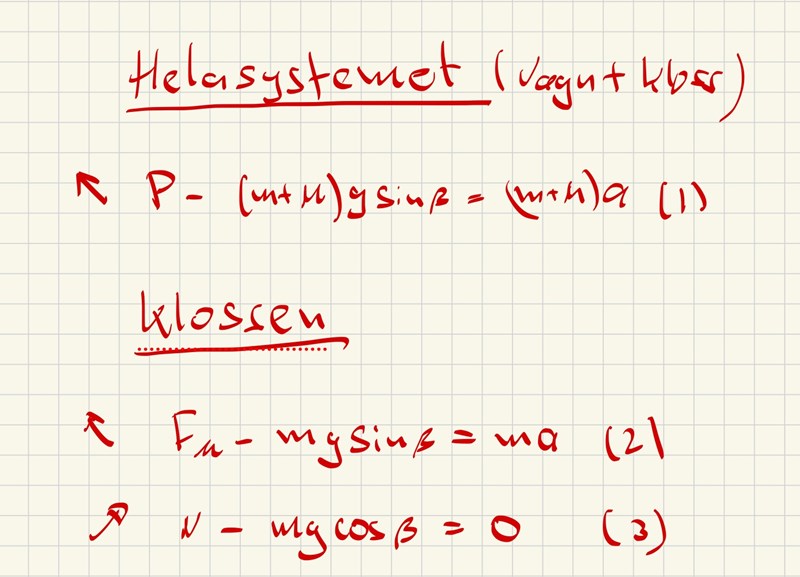 Helasystemet (vagn + kloss)
↖ P - (m+M)g sinβ = (m+M)a (1)
Klossen
↖ Fμ - mg sinβ = ma (2)
↗ N - mg cosβ = 0 (3)